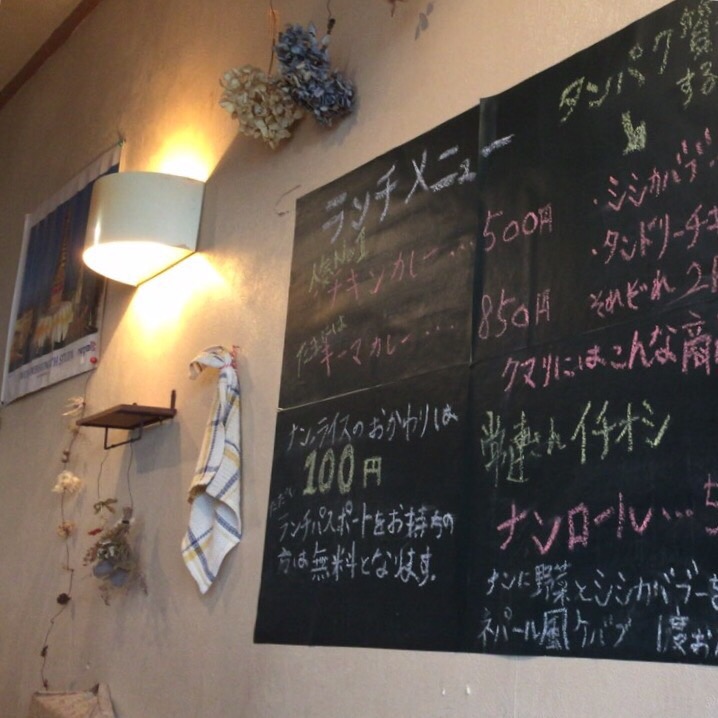 ランチメニュー
人気No.1
チキンカレー… 500円
キーマカレー… 850円
ナン、ライスのおかわりは
100円
ランチパスポートをお持ちの
方は無料となります。
タンパク質
する
・シシカバブ
・タンドリーチキ
それぞれ 2
クマリにはこんな商
常連さんイチオシ
ナンロール…
ナンに野菜とシシカバブーを
ネパール風ケバブ 1度お